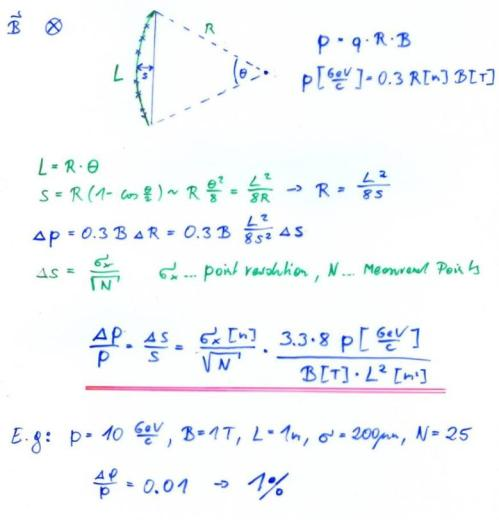 B⃗ ⊗
R
L
s
θ
p = q · R · B
p[GeV/c] = 0.3 R[m] B[T]
L = R · θ
s = R (1 - cos θ/2) ~ R θ²/8 = L²/8R → R = L²/8s
Δp = 0.3 B ΔR = 0.3 B L²/8s² Δs
Δs = σx/√N σx ... point resolution, N ... Measurement Points
Δp/p = Δs/s = σx[m]/√N · 3.3·8 p[GeV/c] / B[T]·L²[m²]
E.g: p = 10 GeV/c, B = 1T, L = 1m, σ = 200µm, N = 25
Δp/p = 0.01 → 1%